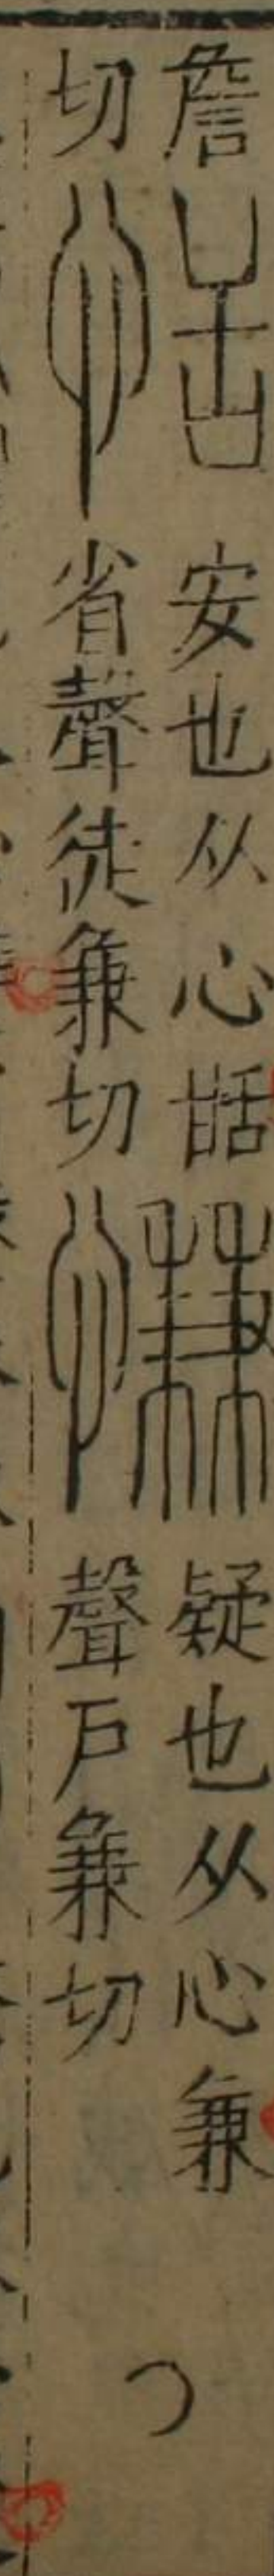 詹
切
恬
安也从心甛
省聲徒兼切
慊
疑也从心兼
聲戶兼切